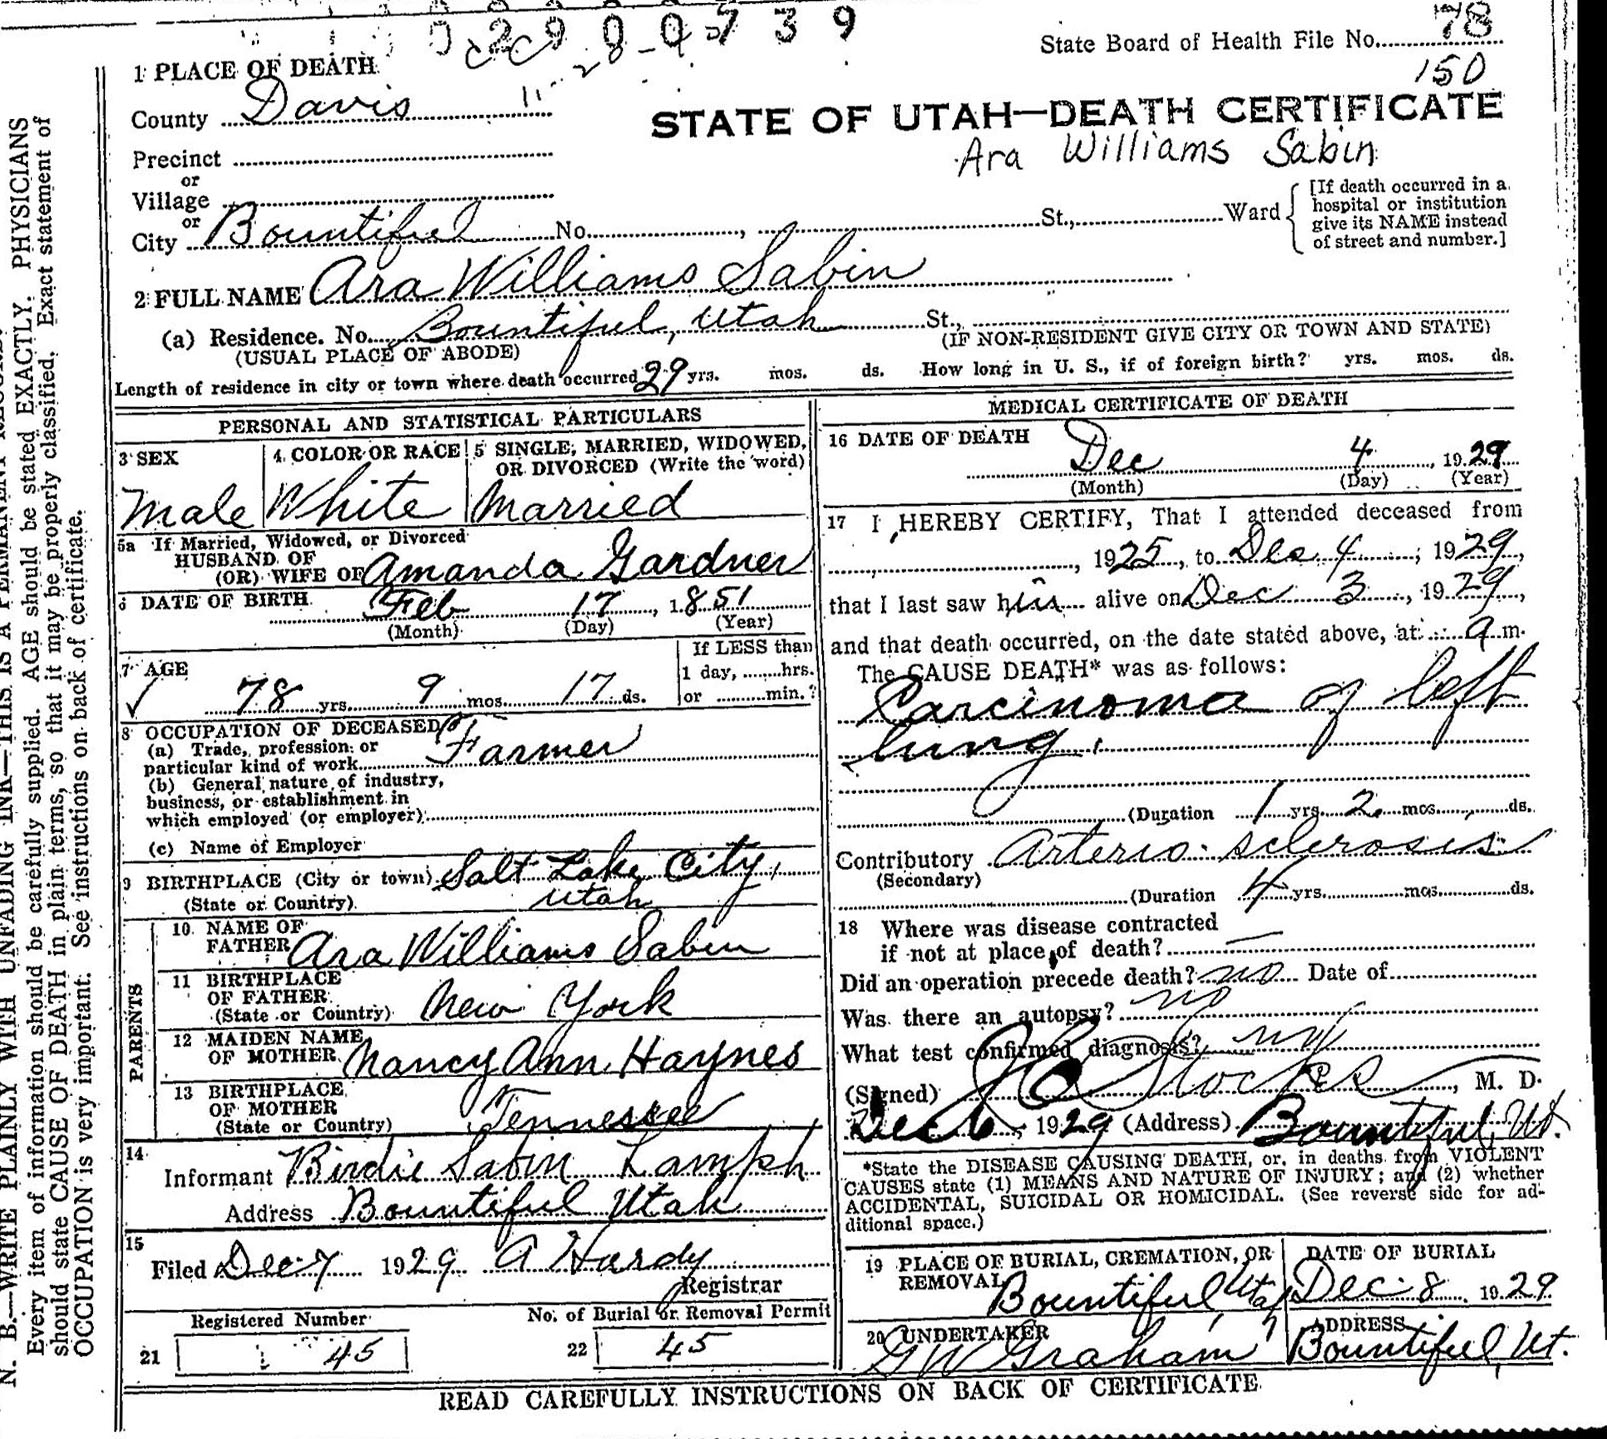 02900739
State Board of Health File No. 78
150
1 PLACE OF DEATH
County Davis
STATE OF UTAH—DEATH CERTIFICATE
Ara Williams Sabin
Precinct
or
Village
or
City Bountiful No. , St., Ward
[If death occurred in a
hospital or institution
give its NAME instead
of street and number.]
2 FULL NAME Ara Williams Sabin
(a) Residence. No. Bountiful, Utah St.,
(USUAL PLACE OF ABODE) (IF NON-RESIDENT GIVE CITY OR TOWN AND STATE)
Length of residence in city or town where death occurred 29 yrs. mos. ds. How long in U. S., if of foreign birth? yrs. mos. ds.
PERSONAL AND STATISTICAL PARTICULARS
3 SEX
Male
4 COLOR OR RACE
White
5 SINGLE, MARRIED, WIDOWED,
OR DIVORCED (Write the word)
Married
5a If Married, Widowed, or Divorced
HUSBAND OF
(OR) WIFE OF Amanda Gardner
6 DATE OF BIRTH Feb 17, 1851
(Month) (Day) (Year)
7 AGE
78 yrs. 9 mos. 17 ds.
If LESS than
1 day, hrs.
or min.?
8 OCCUPATION OF DECEASED
(a) Trade, profession or
particular kind of work Farmer
(b) General nature of industry,
business, or establishment in
which employed (or employer)
(c) Name of Employer
9 BIRTHPLACE (City or town) Salt Lake City,
(State or Country) Utah
PARENTS
10 NAME OF
FATHER Ara Williams Sabin
11 BIRTHPLACE
OF FATHER
(State or Country) New York
12 MAIDEN NAME
OF MOTHER Nancy Ann Haynes
13 BIRTHPLACE
OF MOTHER
(State or Country) Tennessee
14
Informant Birdie Sabin Lamph
Address Bountiful Utah
15
Filed Dec 7 1929 A Hardy
Registrar
Registered Number
21 45
No. of Burial or Removal Permit
22 45
MEDICAL CERTIFICATE OF DEATH
16 DATE OF DEATH Dec 4, 1929
(Month) (Day) (Year)
17 I HEREBY CERTIFY, That I attended deceased from
, 1925, to Dec 4, 1929,
that I last saw him alive on Dec 3, 1929,
and that death occurred, on the date stated above, at 9 m.
The CAUSE DEATH* was as follows:
Carcinoma of left
lung.
(Duration 1 yrs. 2 mos. ds.
Contributory Arterio-sclerosis
(Secondary)
(Duration 4 yrs. mos. ds.
18 Where was disease contracted
if not at place of death? —
Did an operation precede death? no Date of
Was there an autopsy? no
What test confirmed diagnosis?
(Signed) Stocks, M. D.
Dec 6, 1929 (Address) Bountiful, Ut.
*State the DISEASE CAUSING DEATH, or, in deaths from VIOLENT
CAUSES state (1) MEANS AND NATURE OF INJURY; and (2) whether
ACCIDENTAL, SUICIDAL OR HOMICIDAL. (See reverse side for ad-
ditional space.)
19 PLACE OF BURIAL, CREMATION, OR
REMOVAL
Bountiful Utah
DATE OF BURIAL
Dec 8 1929
20 UNDERTAKER
G W Graham
ADDRESS
Bountiful, Ut.
READ CAREFULLY INSTRUCTIONS ON BACK OF CERTIFICATE
N. B.—WRITE PLAINLY WITH UNFADING INK—THIS IS A PERMANENT
Every item of information should be carefully supplied. AGE should be stated EXACTLY. PHYSICIANS
should state CAUSE OF DEATH in plain terms, so that it may be properly classified. Exact statement of
OCCUPATION is very important. See instructions on back of certificate.